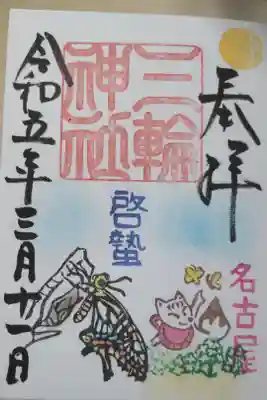 奉拝
三輪
神社
啓蟄
名古屋
令和五年三月十一日